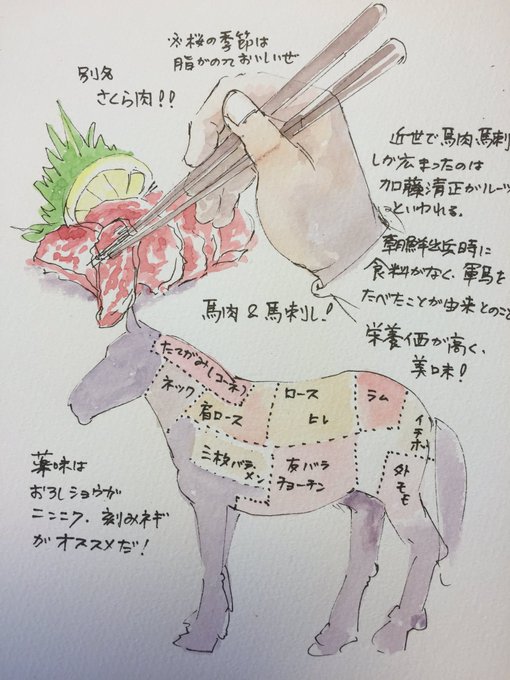 ※桜の季節は
脂がのっておいしいぜ
別名
さくら肉!!
近世で馬肉、馬刺
しか広まったのは
加藤清正がルーツ
といわれる。
朝鮮出兵時に
食料がなく、軍馬を
たべたことが由来とのこと
栄養価が高く、
美味!
馬肉&馬刺し!
たてがみ(コーネ)
ネック
肩ロース
ロース
ヒレ
ラム
イチボ
三枚バラ
メン
友バラ
チョーチン
外モモ
薬味は
おろしショウガ
ニンニク、刻みネギ
がオススメだ!